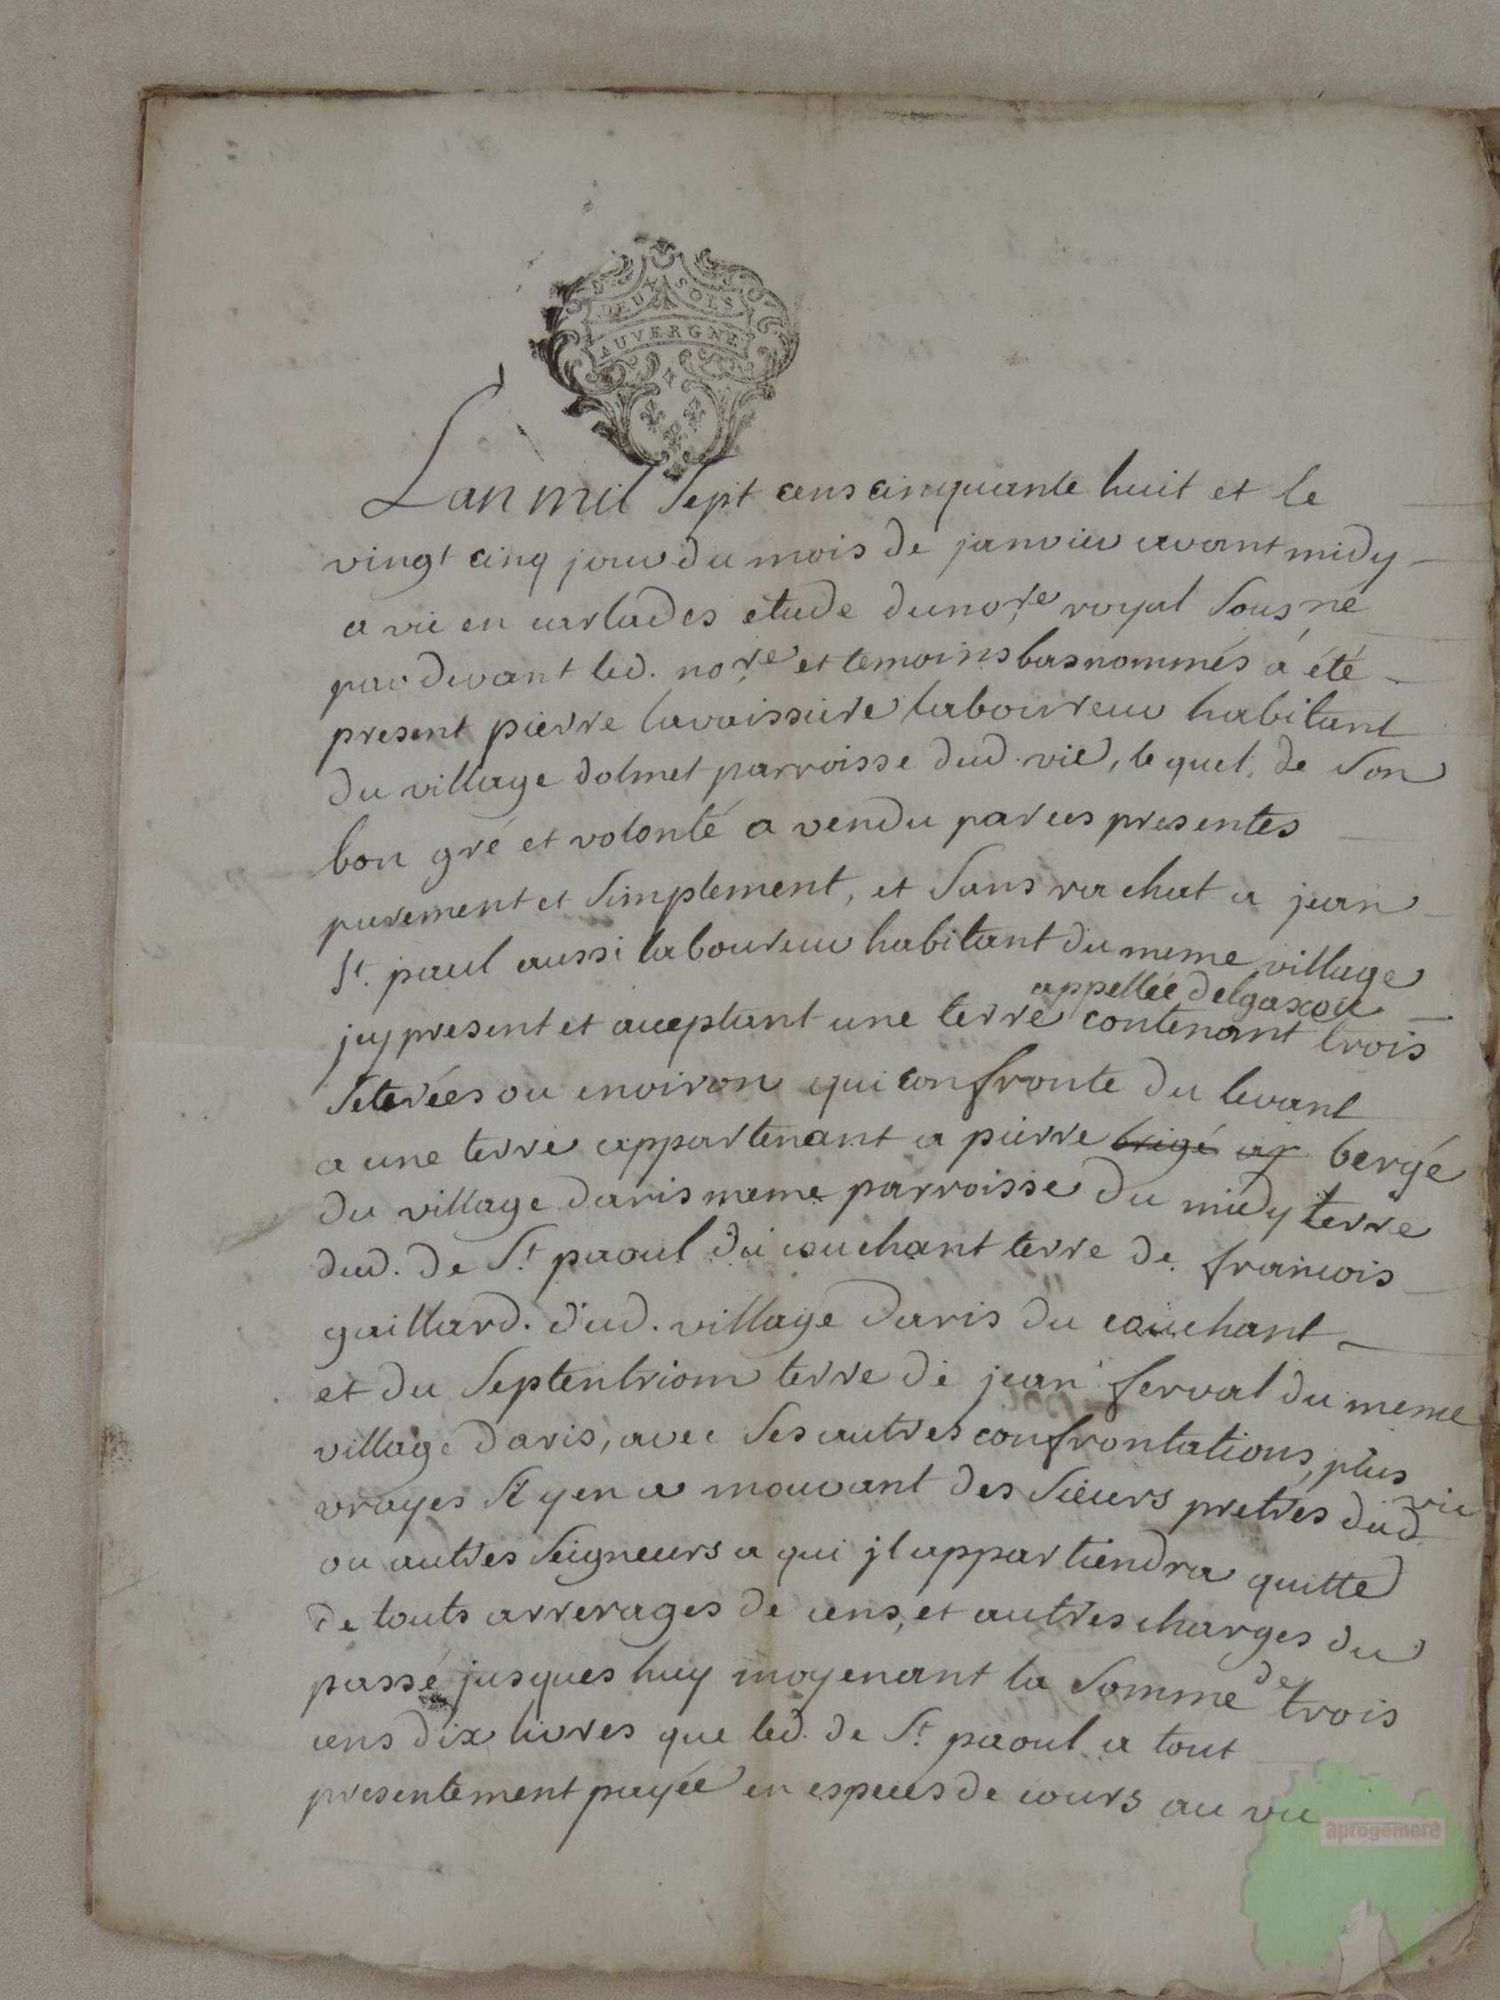 DEUX SOLS
AUVERGNE
L'an mil sept cens cinquante huit et le
vingt cinq jour du mois de janvier avant midy
a vic en carlades etude du nore royal sousne
par devant led. nore et temoins bas nommés á été
present pierre lavaissiere laboureur habitant
du village dolmet parroisse dud. vic, le quel de son
bon gré et volonté a vendu par ces presentes
purement et simplement, et sans rachat a jean
St. paul aussi laboureur habitant du meme village
appellée delgaxou
jcy present et aceptant une terre contenant trois
seterées ou environ qui confronte du levant
a une terre appartenant a pierre brigé bergé
du village daris meme parroisse du midy terre
dud. de St. paoul du couchant terre de francois
gaillard. dud. village daris du couchant
et du septentriom terre de jean ferval du meme
village daris, avec ses autres confrontations, plus
vrayes sÿ yen a mouvant des sieurs pretres dud vic
ou autres seigneurs a qui jl appartiendra quitte
de touts arrerages de cens, et autres charges du
passé jusques huy moyenant la somme de trois
cens dix livres que led. de St. paoul a tout
presentement payée en especes de cours au vu
aprogemere